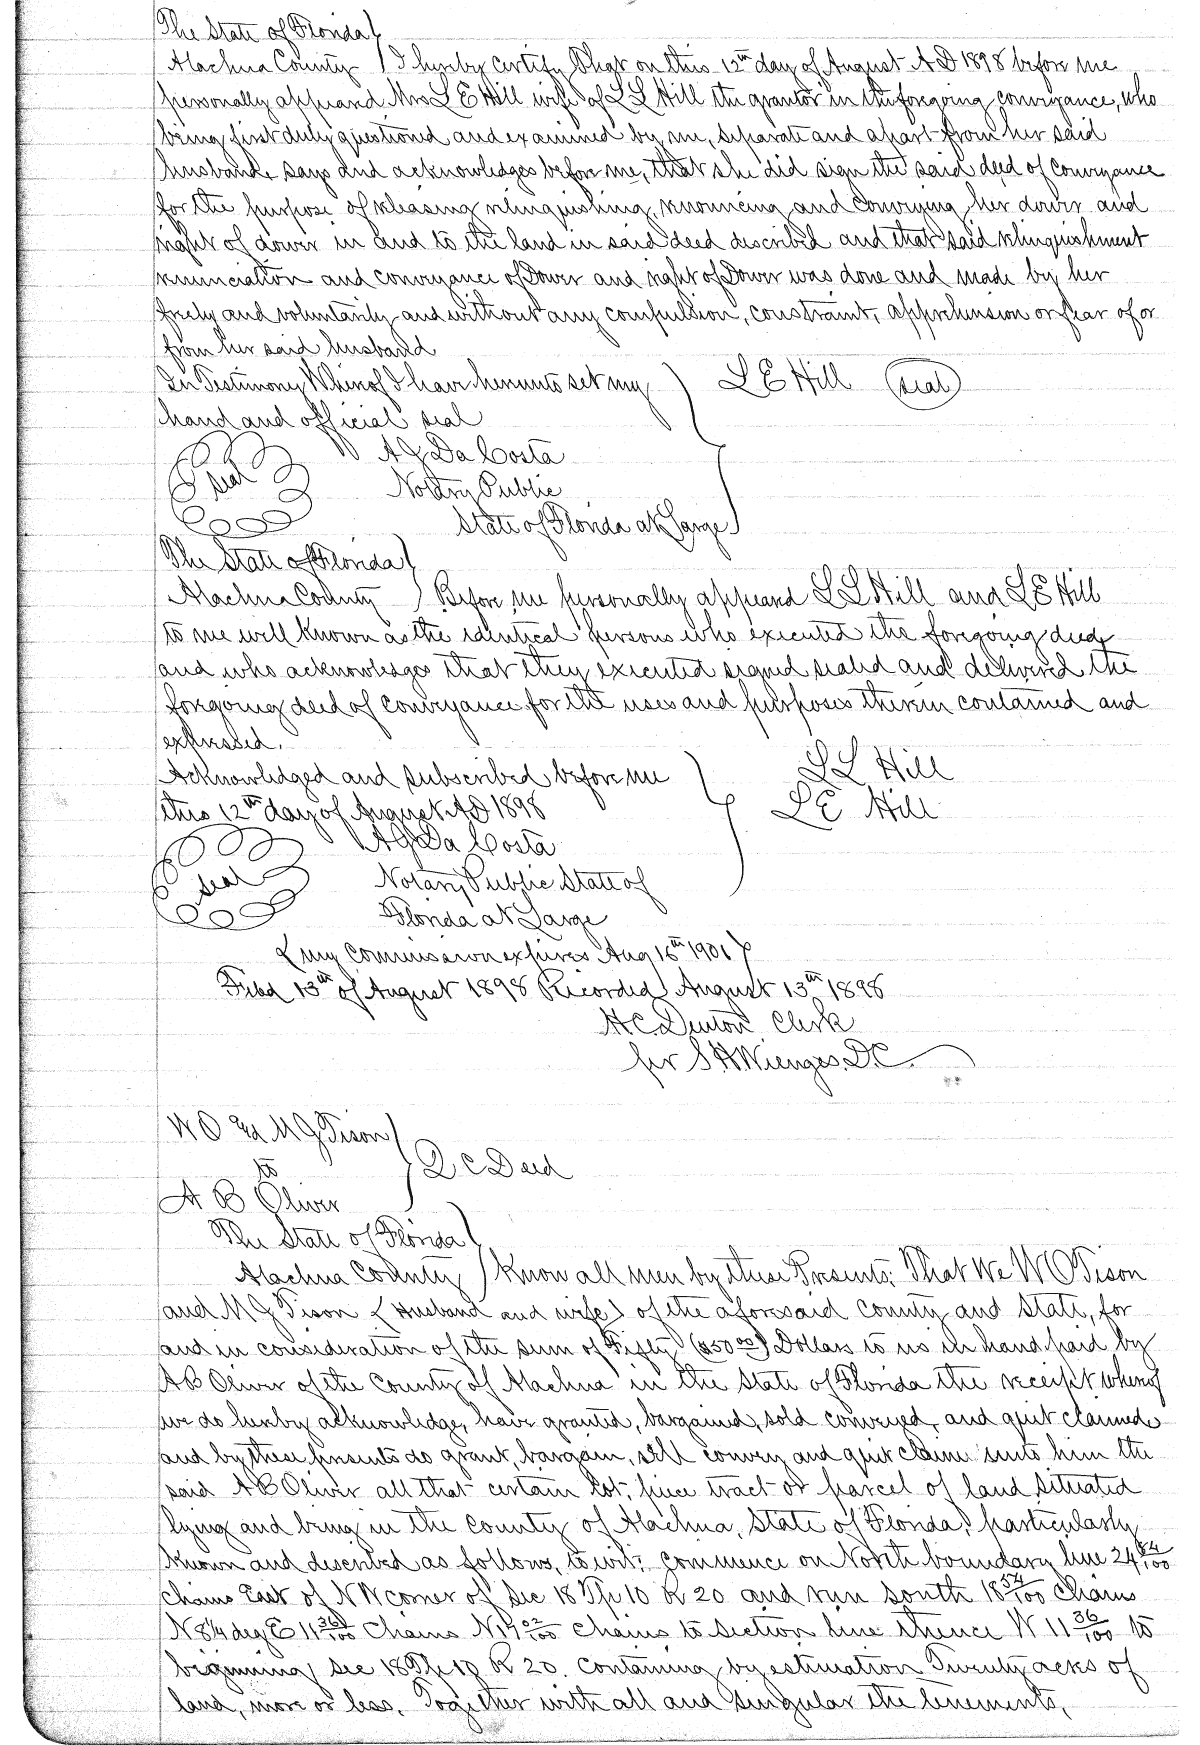 The State of Florida
Alachua County I hereby certify that on this 12th day of August A D 1898 before me
personally appeared Mrs L E Hill wife of L L Hill the grantor in the foregoing conveyance, who
being first duly questioned and examined by me, separate and apart from her said
husband, says and acknowledges before me, that she did sign the said deed of conveyance
for the purpose of releasing relinquishing, renouncing and conveying her dower and
right of dower in and to the land in said deed described and that said relinquishment
renunciation and conveyance of Dower and right of Dower was done and made by her
freely and voluntarily and without any compulsion, constraint, apprehension or fear of or
from her said husband
In Testimony Whereof I have hereunto set my L E Hill seal
hand and official seal
A J Da Costa
seal Notary Public
State of Florida at Large
The State of Florida
Alachua County Before me personally appeared L L Hill and L E Hill
to me well known as the identical persons who executed the foregoing deed
and who acknowledge that they executed signed sealed and delivered the
foregoing deed of conveyance for the uses and purposes therein contained and
expressed.
Acknowledged and subscribed before me L L Hill
this 12th day of August A D 1898 L E Hill
A J Da Costa
seal Notary Public State of
Florida at Large
(my commission expires Aug 16th 1901)
Filed 13th of August 1898 Recorded August 13th 1898
H. C. Denton Clerk
per S H Wienges. D. C.
W O and M J Tison
to Q C Deed
A B Oliver
The State of Florida
Alachua County Know all men by these Presents: That We W O Tison
and M J Tison (Husband and wife) of the aforesaid County and State, for
and in consideration of the sum of Fifty ($50 00) Dollars to us in hand paid by
A B Oliver of the County of Alachua in the State of Florida the receipt whereof
we do hereby acknowledge, have granted, bargained, sold conveyed, and quit claimed
and by these presents do grant, bargain, sell convey and quit claim unto him the
said A B Oliver all that certain lot, piece tract or parcel of land situated
lying and being in the County of Alachua, State of Florida, particularly
known and described as follows, to wit: commence on North boundary line 24 84/100
chains East of N W corner of Sec 18 Tp 10 R 20 and run south 18 54/100 chains
N 84 deg E 11 36/100 chains N 17 02/100 chains to section line thence W 11 36/100 to
beginning, sec 18 Tp 10 R 20. containing by estimation Twenty acres of
land, more or less. Together with all and singular the tenements,